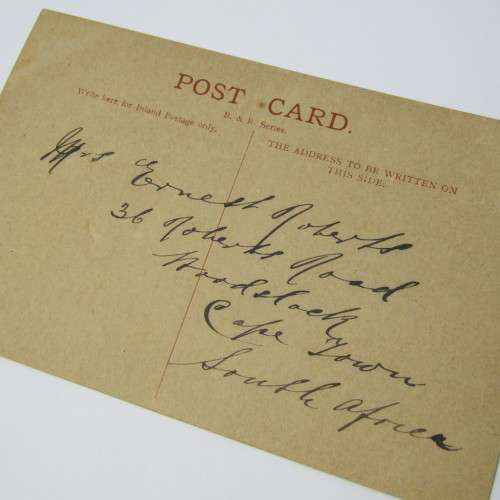 POST CARD.
Write here for Inland Postage only.
B. & R. Series.
THE ADDRESS TO BE WRITTEN ON
THIS SIDE.
Mrs Ernest Roberts
36 Roberts Road
Woodstock
Cape Town
South Africa